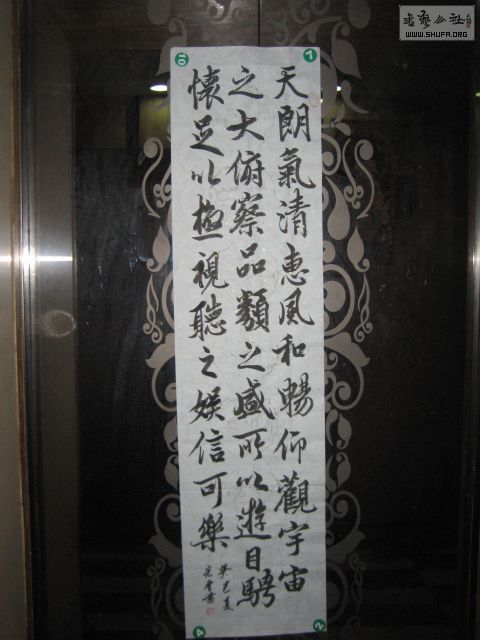 天朗氣清惠風和暢仰觀宇宙
之大俯察品類之盛所以遊目騁
懷足以極視聽之娛信可樂
癸巳夏
書藝公社
WWW.SHUFA.ORG